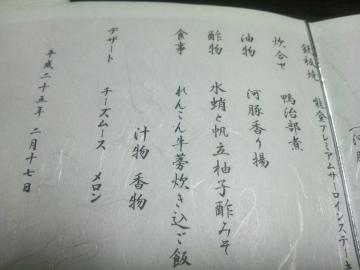 鉄板焼 能登プレミアムサーロインステーキ
炊合せ 鴨治部煮
油物 河豚香り揚
酢物 水蛸と帆立柚子酢みそ
食事 れんこん牛蒡炊き込ご飯
汁物 香物
デザート チーズムース メロン
平成二十五年 二月十七日